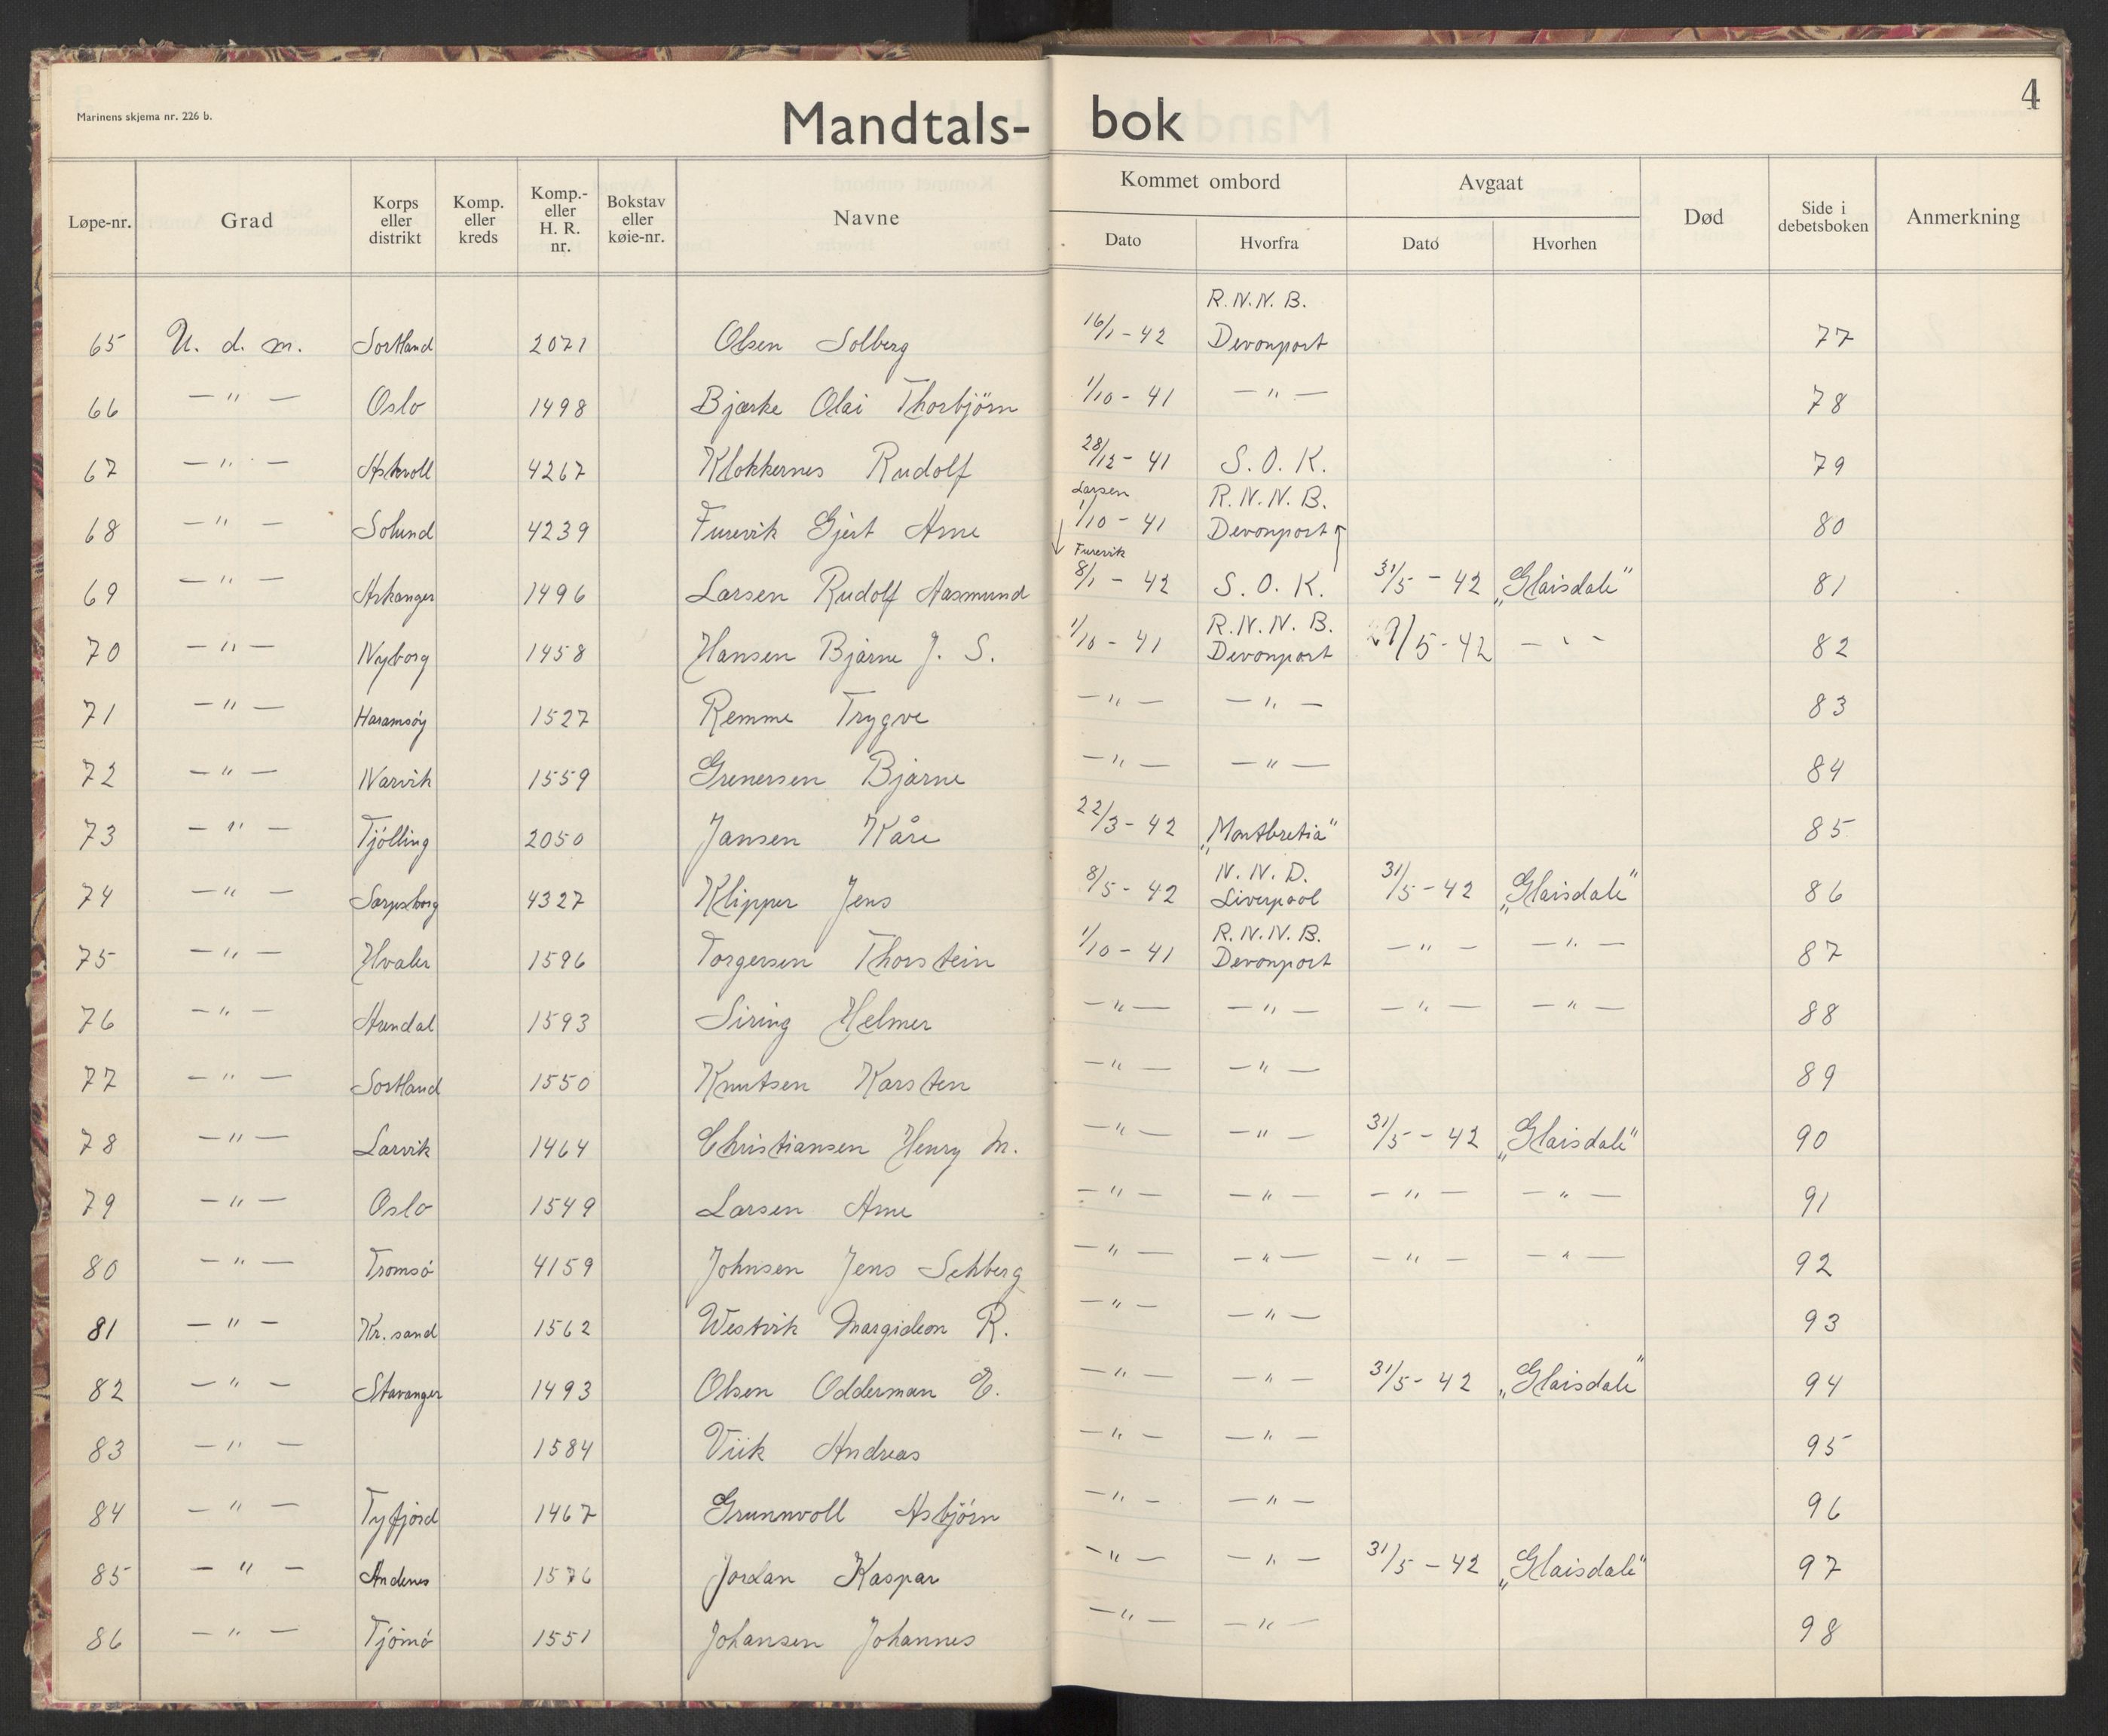 Marinens skjema nr. 226 b.
Mandtals-bok
4
Løpe-nr. Grad Korps eller distrikt Komp. eller kreds Komp.- eller H. R. nr. Bokstav eller køie-nr. Navne Kommet ombord Dato Hvorfra Avgaat Dato Hvorhen Død Side i debetsboken Anmerkning
65 U. d. m. Sortland 2071 Olsen Solberg 16/1 - 42 R. N. N. B. Devonport 77
66 — " — Oslo 1498 Bjærke Olai Thorbjörn 1/10 - 41 — " — 78
67 — " — Askvoll 4267 Klokkernes Rudolf 28/12 - 41 S. O. K. 79
68 — " — Solund 4239 Furevik Gjert Arne Larsen 1/10 - 41 R. N. N. B. Devonport 80
69 — " — Askanger 1496 Larsen Rudolf Aasmund Furevik 8/1 - 42 S. O. K. 31/5 - 42 „Glaisdale" 81
70 — " — Nyborg 1458 Hansen Bjarne J. S. 1/10 - 41 R. N. N. B. Devonport /5 - 42 — " — 82
71 — " — Haramsöy 1527 Remme Trygve — " — — " — 83
72 — " — Narvik 1559 Grenersen Bjarne — " — — " — 84
73 — " — Tjölling 2050 Jansen Kåre 22/3 - 42 „Montbretia" 85
74 — " — Sarpsborg 4327 Klipper Jens 8/5 - 42 N. N. D. Liverpool 31/5 - 42 „Glaisdale" 86
75 — " — Hvaler 1596 Torgersen Thorstein 1/10 - 41 R. N. N. B. Devonport — " — — " — 87
76 — " — Arendal 1593 Siring Helmer — " — — " — — " — — " — 88
77 — " — Sortland 1550 Knutsen Karsten — " — — " — 89
78 — " — Larvik 1464 Christiansen Henry M. — " — — " — 31/5 - 42 „Glaisdale" 90
79 — " — Oslo 1549 Larsen Arne — " — — " — — " — — " — 91
80 — " — Tromsö 4159 Johnsen Jens Sehberg — " — — " — — " — — " — 92
81 — " — Kr. sand 1562 Westvik Margideon R. — " — — " — 93
82 — " — Stavanger 1493 Olsen Odderman E. — " — — " — 31/5 - 42 „Glaisdale" 94
83 — " — 1584 Viik Andreas — " — — " — 95
84 — " — Tyfjord 1467 Grunnvoll Asbjörn — " — — " — 96
85 — " — Andenes 1576 Jordan Kaspar — " — — " — 31/5 - 42 „Glaisdale" 97
86 — " — Tjömö 1551 Johansen Johannes — " — — " — 98